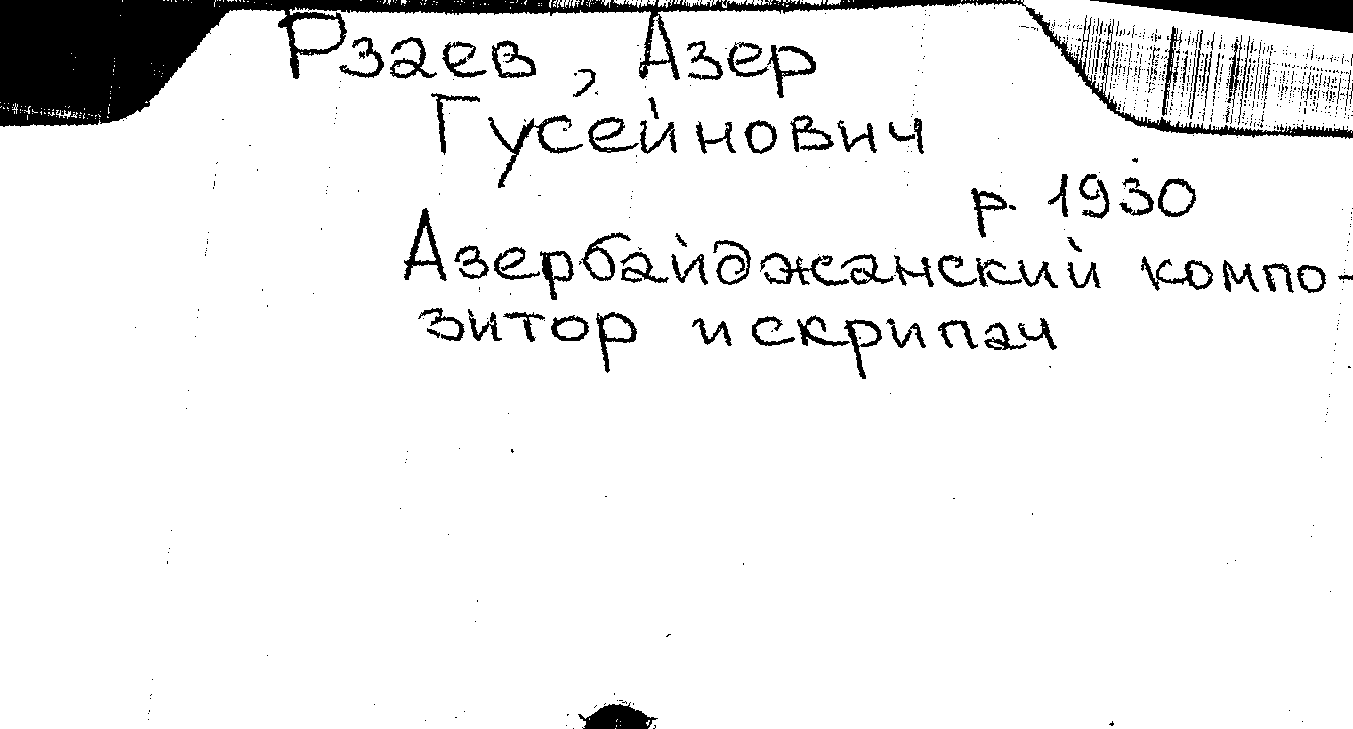 Рзаев, Азер
Гусейнович
р. 1930
Азербайджанский компо-
зитор и скрипач